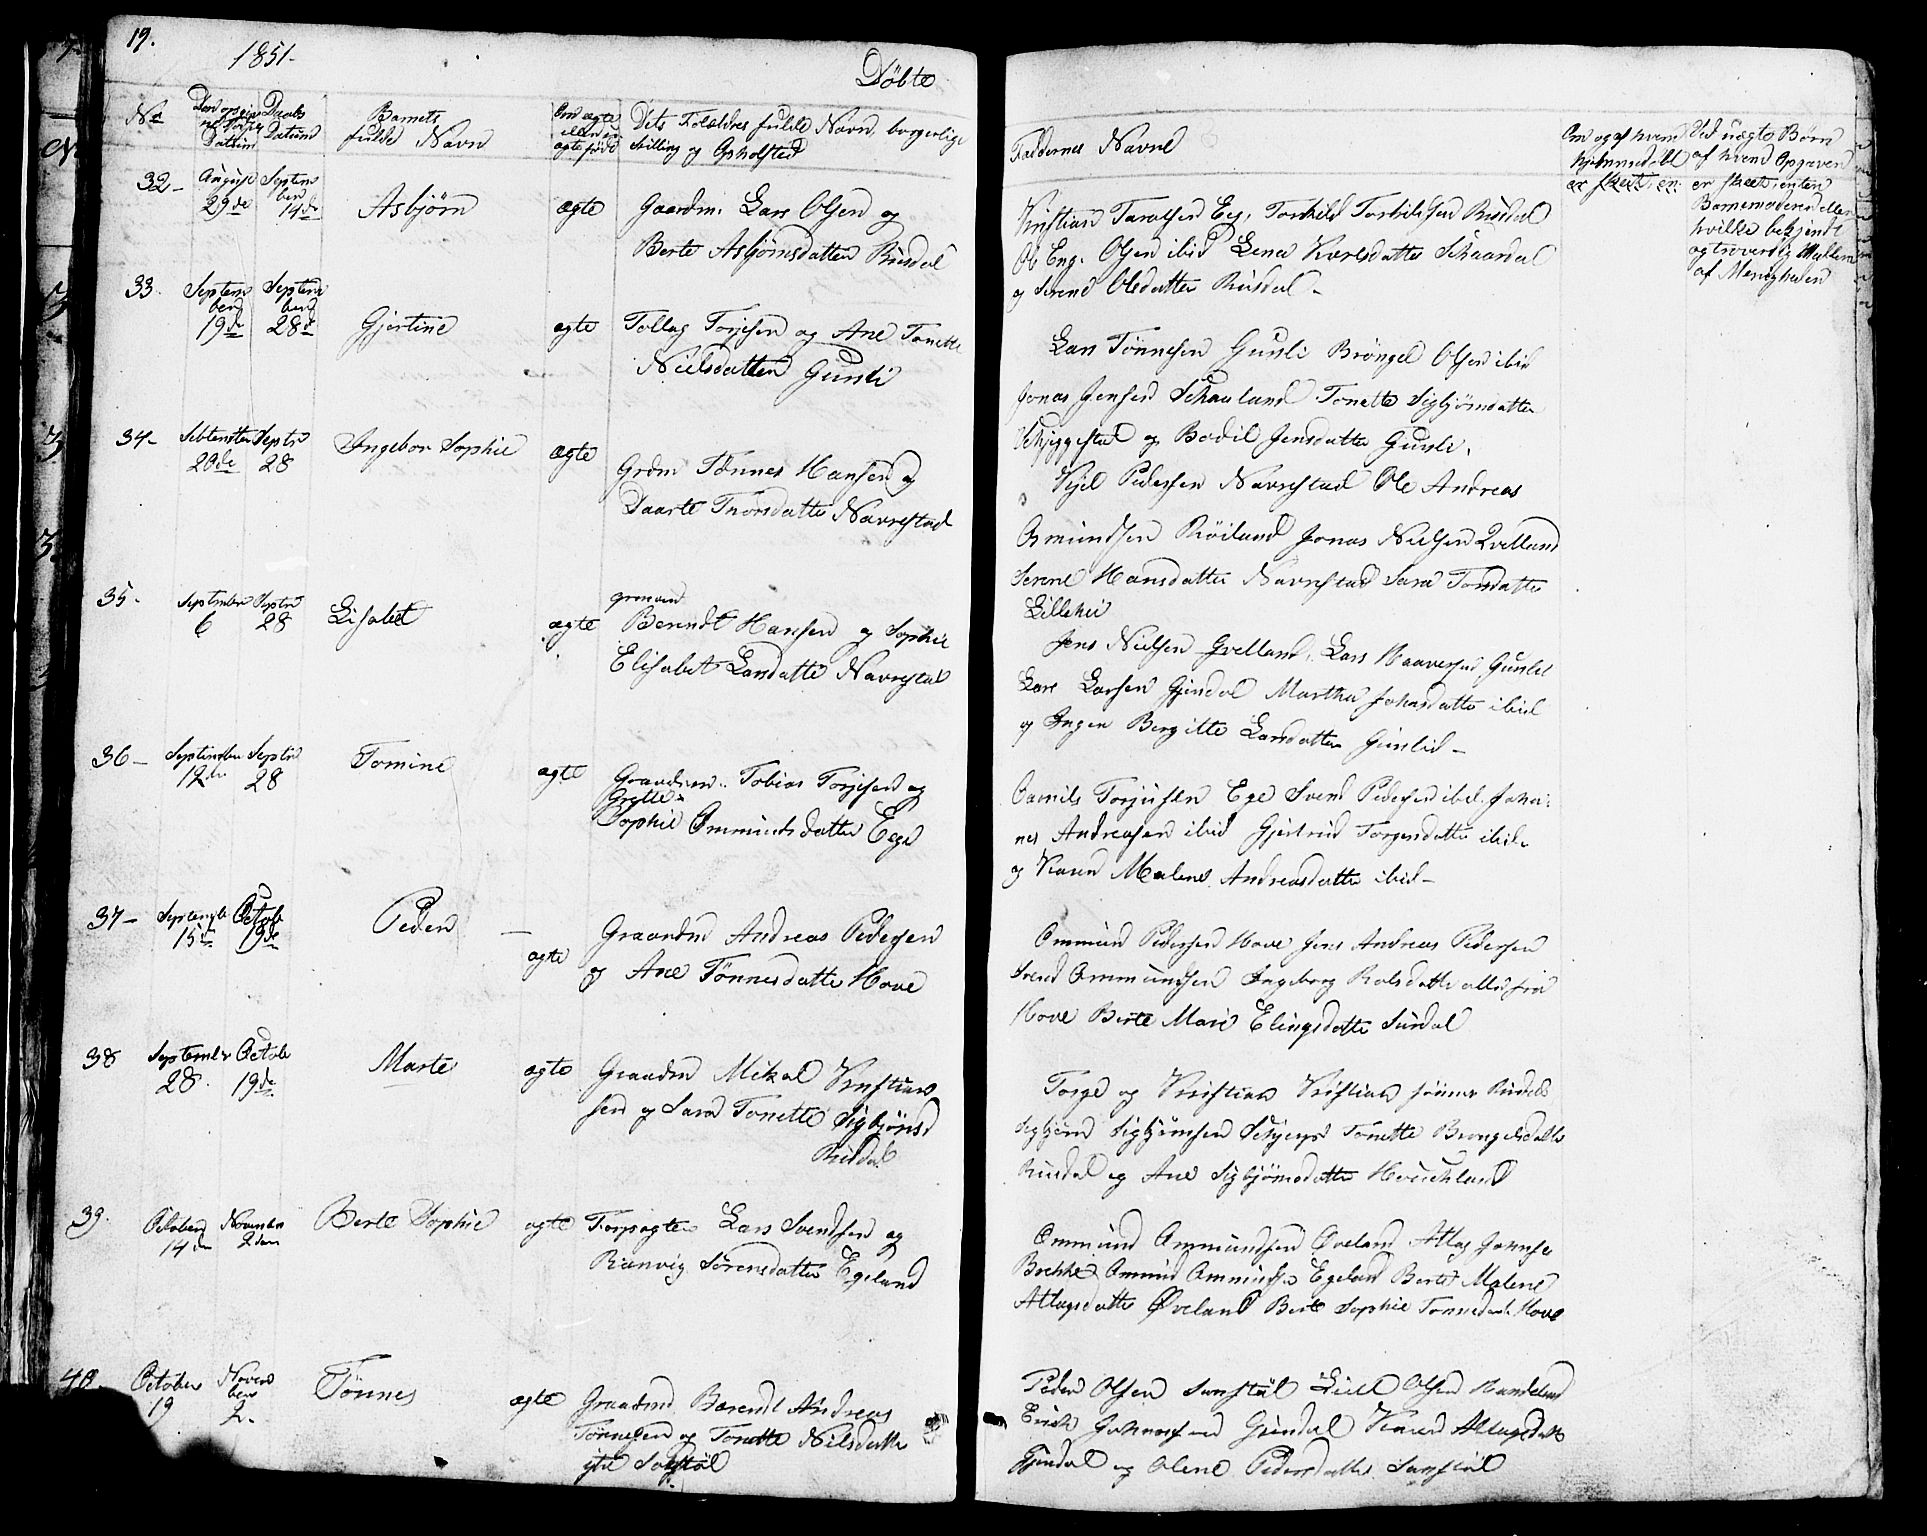 19.
1851.
Döbte
No
Barnets
fulde Navn
Daabs
Datum
Om ægte
eller u
ægte född
Dets Forældres fulde Navn, borgerlige
Stilling og Opholsted
Faddernes Navne
Om og af hvem
hjemmedaab
er skeet, en
Ved uægte Börn
af hvem Opgaven
er skeet, enten
Barnemoderen eller
hvilke bekjendt
og troverdig Mellem
af Menigheden
32-
August
29de
Septem
ber
14de
Asbjörn
ægte
Gaardm. Lars Olsen og
Berte Asbjörnsdatter Rusdal
Kristian Taralsen Eeg, Torkild Torkildsen Rusdal
Ole Eng. Olsen ibid Lena Karlsdatter Skaardal
og Serene Olsdatter Rusdal -
33.
Septem
ber
19de
Septem
ber
28de
Gjertine
ægte
Tollag Torjesen og Ane Tonette
Nielsdatter Gusli
Lars Tönnesen Gusli Bröngel Olsen ibid
Jonas Jensen Skauland Tonette Sigbjörnsdatter
Skjeggestad og Bodil Jensdatter Gusli.
34-
Sebtember
20de
Septr
28
Ingebor Sophie
ægte
Grdm Tönnes Hansen og
Daarte Thorsdatter Navrestad
Kjel Pedersen Navrestad Ole Andreas
Osmundsen Röiland Jonas Nielsen Qvelland
Serene Hansdatter Navrestad Sara Torsdatter
Lillehei
35.
September
6
Septr
28
Lisabet
ægte
Berendt Hansen og Sophie
Elisabet Larsdatter Navrestad
Jens Nielsen Qvelland, Lars Haaversen Guslid
Lars Larsen Gjendal Martha Johnsdatter ibid
og Inger Bergitte Larsdatter Guslid -
36-
September
12de
Septr
28
Tomine
ægte
Graadm. Tobias Torjesen og
Grette
Sophie Ommundsdatter Ege
Torjusen Ege Svend Pedersen ibid. Johan
nes Andreasen ibid Gjertrud Torgersdatter ibid
og Karen Malene Andreasdatter ibid -
37-
Septembr
15de
Octob
19de
Peder
ægte
Graardm Andreas Pedersen
og Ane Tönnesdatter Hove
Ommund Pedersen Hove Jens Andreas Pedersen
Svend Ommundsen Ingeborg Rolsdatter alle fra
Hove Berte Marie Elingsdatter Surdal
38
September
28.
Octob
19de
Marte
ægte
Graadm Mikal Kristian
sen og Sara Tonette Sigbjörnsd
Rusdal
Torge og Kristian Kristian sönner Rusdal
Sigbjörn Sigbjörnsen Tonette Brongelsdatter
Rusdal og Ane Sigbjörnsdatter
39.
October
14de
Novemb
2den
Berte Sophie
ægte
Forpagter Lars Svendsen og
Rannvig Sörensdatter Egeland
Ommund Ommundsen Öveland Atlag Johnse
Bakke Ommund Ommundsen Egeland Berte Malene
Atlagsdatter Öveland Berte Sophie Tönnesdatt Hove
40.
October
19
Novem
ber
2.
Tönnes
ægte
Graadmd. Berendt Andreas
Tönnesen og Tonette Nilsdatter
Peder Olsen Sunstöl Olsen Handeland
Erick Johannesen Gjendal Karen Atlagsdatter
Gjendal og Olene Pedersdatter Sunstöl